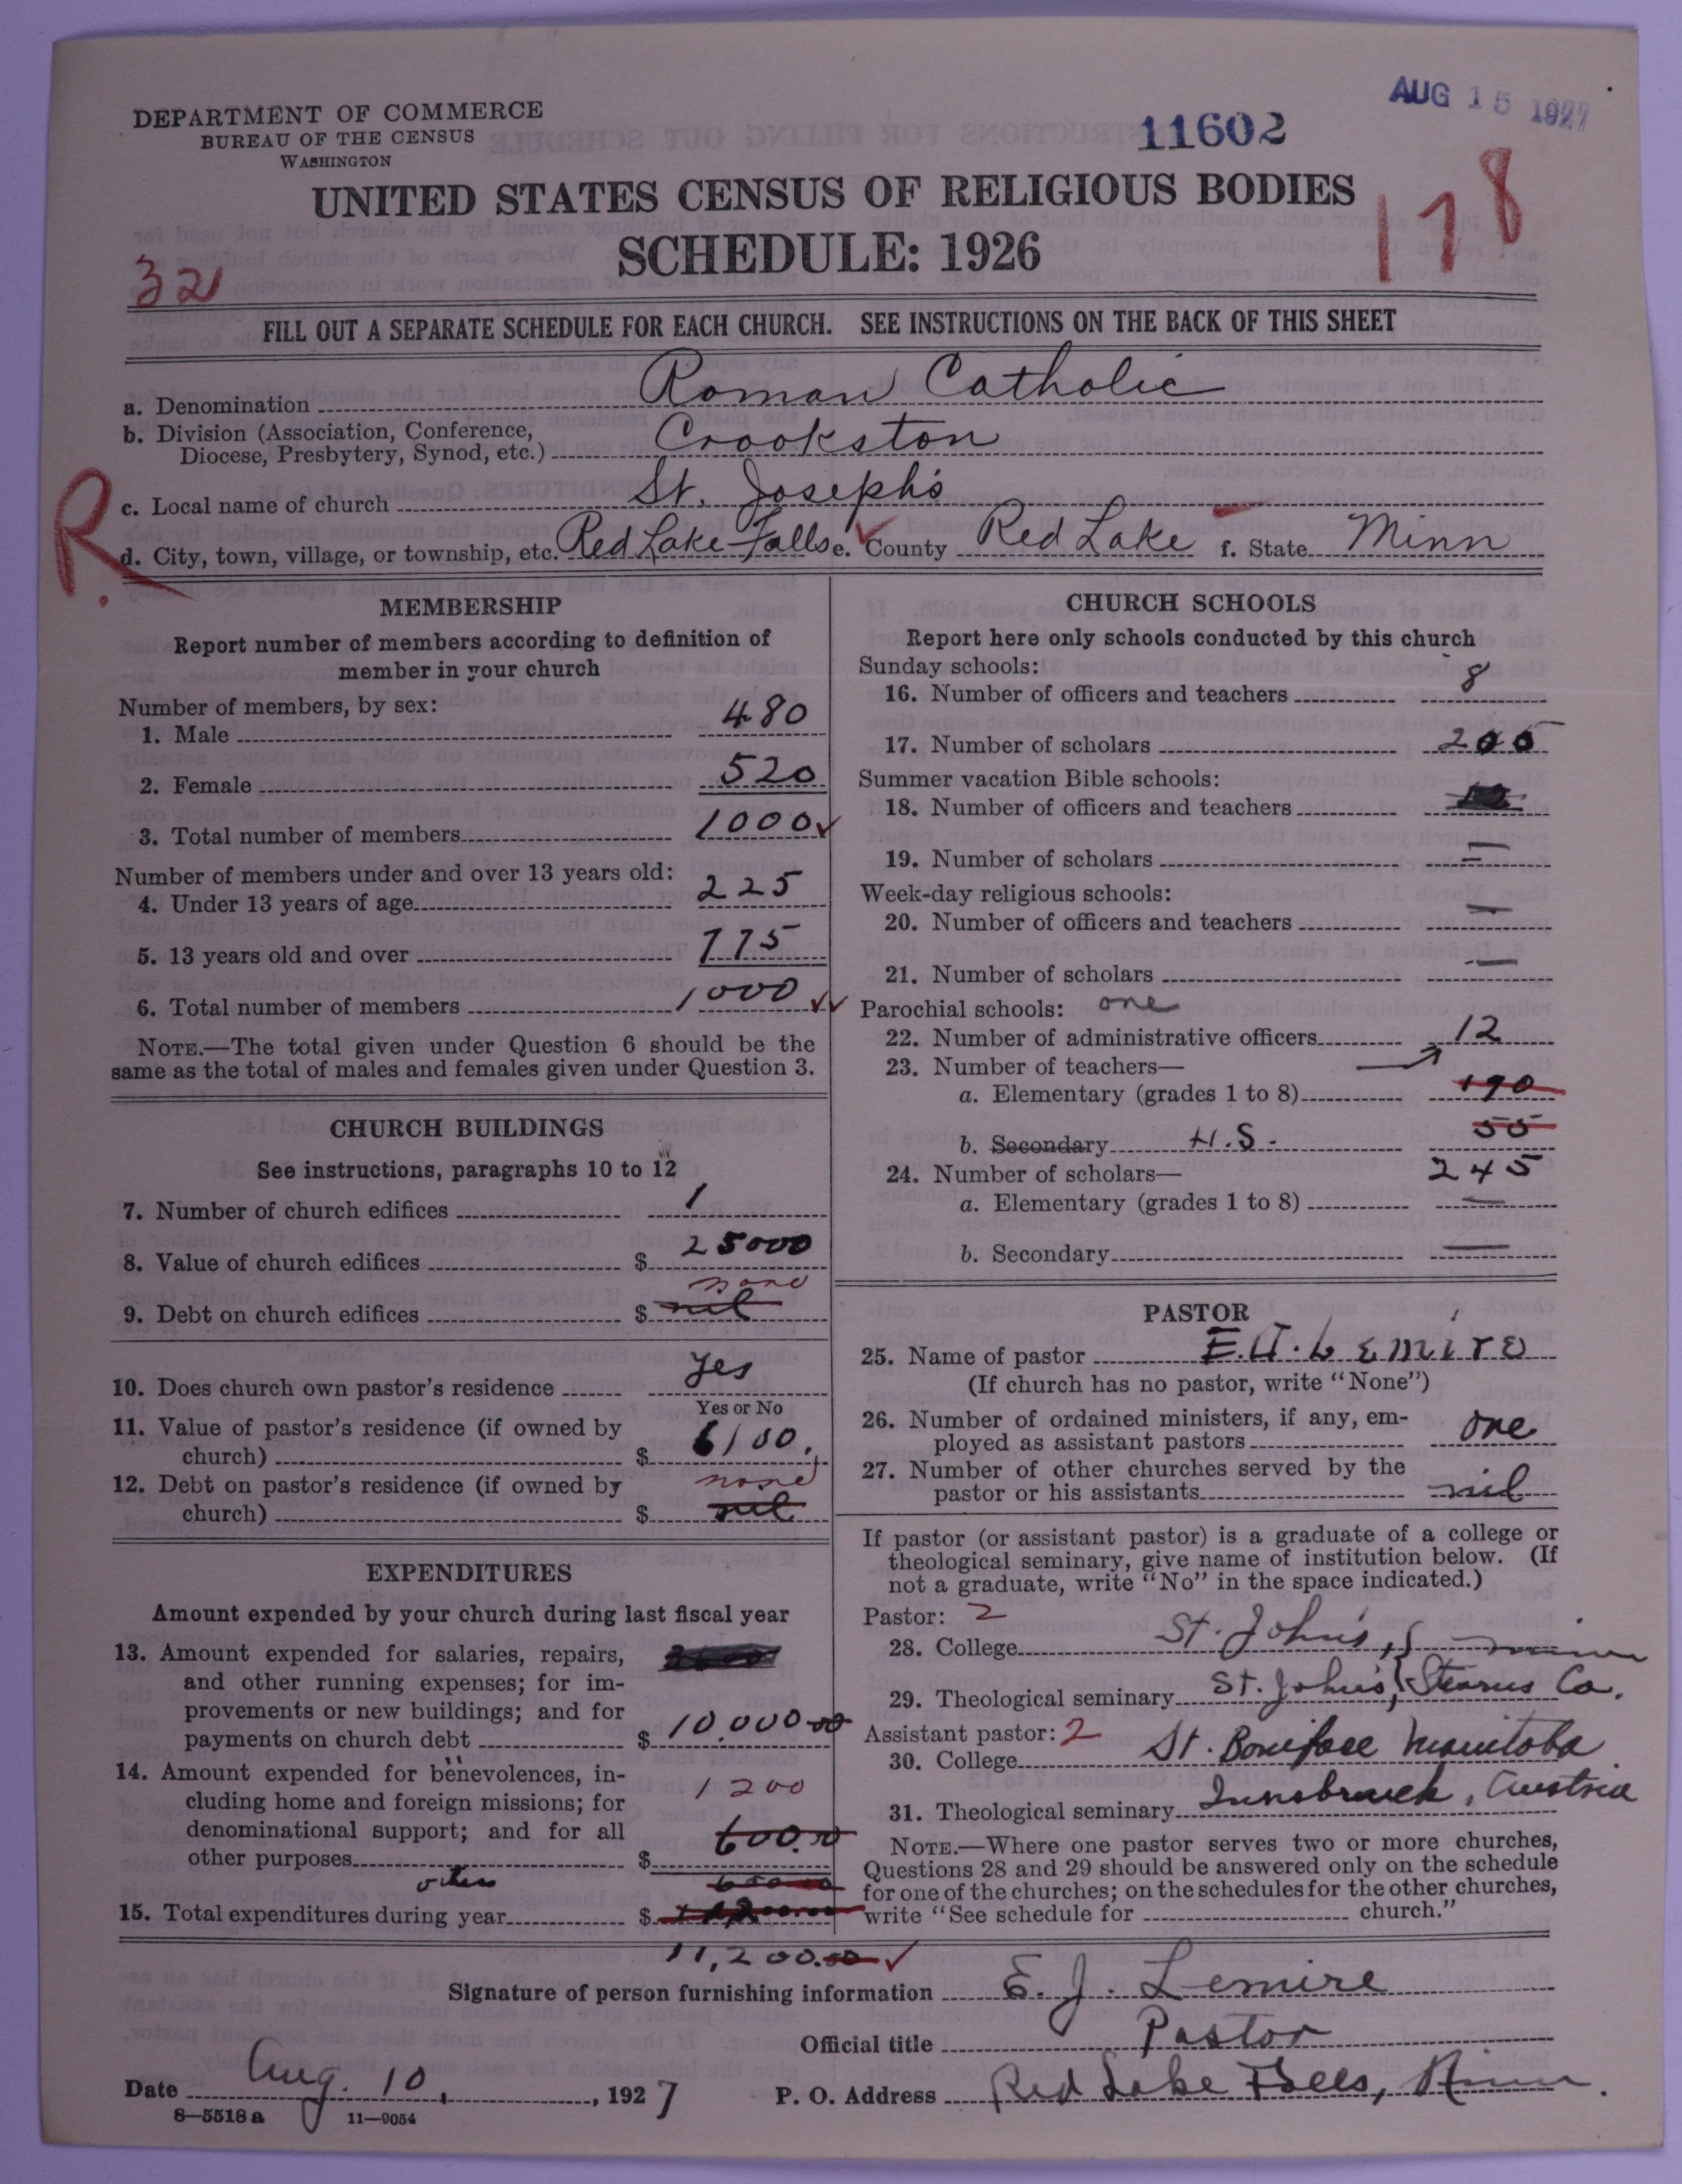 AUG 15 1927
DEPARTMENT OF COMMERCE
BUREAU OF THE CENSUS
WASHINGTON
11602
UNITED STATES CENSUS OF RELIGIOUS BODIES
SCHEDULE: 1926
178
321
FILL OUT A SEPARATE SCHEDULE FOR EACH CHURCH. SEE INSTRUCTIONS ON THE BACK OF THIS SHEET
a. Denomination Roman Catholic
b. Division (Association, Conference,
Diocese, Presbytery, Synod, etc.) Crookston
R.
c. Local name of church St. Joseph's
d. City, town, village, or township, etc. Red Lake Falls e. County Red Lake f. State Minn
MEMBERSHIP
Report number of members according to definition of
member in your church
Number of members, by sex:
1. Male 480
2. Female 520
3. Total number of members 1000
Number of members under and over 13 years old:
4. Under 13 years of age 225
5. 13 years old and over 775
6. Total number of members 1000
NOTE.—The total given under Question 6 should be the
same as the total of males and females given under Question 3.
CHURCH BUILDINGS
See instructions, paragraphs 10 to 12
7. Number of church edifices 1
8. Value of church edifices $ 25000
none
9. Debt on church edifices $ nil
10. Does church own pastor's residence Yes
Yes or No
11. Value of pastor's residence (if owned by
church) $ 6100.
12. Debt on pastor's residence (if owned by none
church) $ nil
EXPENDITURES
Amount expended by your church during last fiscal year
13. Amount expended for salaries, repairs,
and other running expenses; for im-
provements or new buildings; and for
payments on church debt $ 10,000.00
14. Amount expended for benevolences, in-
cluding home and foreign missions; for 1200
denominational support; and for all 600.00
other purposes $
others 600.00
15. Total expenditures during year $
11,200.00
CHURCH SCHOOLS
Report here only schools conducted by this church
Sunday schools:
16. Number of officers and teachers 8
17. Number of scholars 200
Summer vacation Bible schools:
18. Number of officers and teachers
19. Number of scholars —
Week-day religious schools:
20. Number of officers and teachers —
21. Number of scholars —
Parochial schools: one
22. Number of administrative officers 12
23. Number of teachers—
a. Elementary (grades 1 to 8) 190
b. Secondary H.S. 55
24. Number of scholars— 245
a. Elementary (grades 1 to 8) —
b. Secondary —
PASTOR
25. Name of pastor E.J. Lemire
(If church has no pastor, write "None")
26. Number of ordained ministers, if any, em-
ployed as assistant pastors one
27. Number of other churches served by the
pastor or his assistants nil
If pastor (or assistant pastor) is a graduate of a college or
theological seminary, give name of institution below. (If
not a graduate, write "No" in the space indicated.)
Pastor: 2
28. College St. John's, Minn
29. Theological seminary St. John's, Stearns Co.
Assistant pastor: 2
30. College St. Boniface Manitoba
31. Theological seminary Innsbruck, Austria
NOTE.—Where one pastor serves two or more churches,
Questions 28 and 29 should be answered only on the schedule
for one of the churches; on the schedules for the other churches,
write "See schedule for church."
Signature of person furnishing information E. J. Lemire
Official title Pastor
Date Aug. 10, 1927 P. O. Address Red Lake Falls, Minn.
8—5518a 11—9054